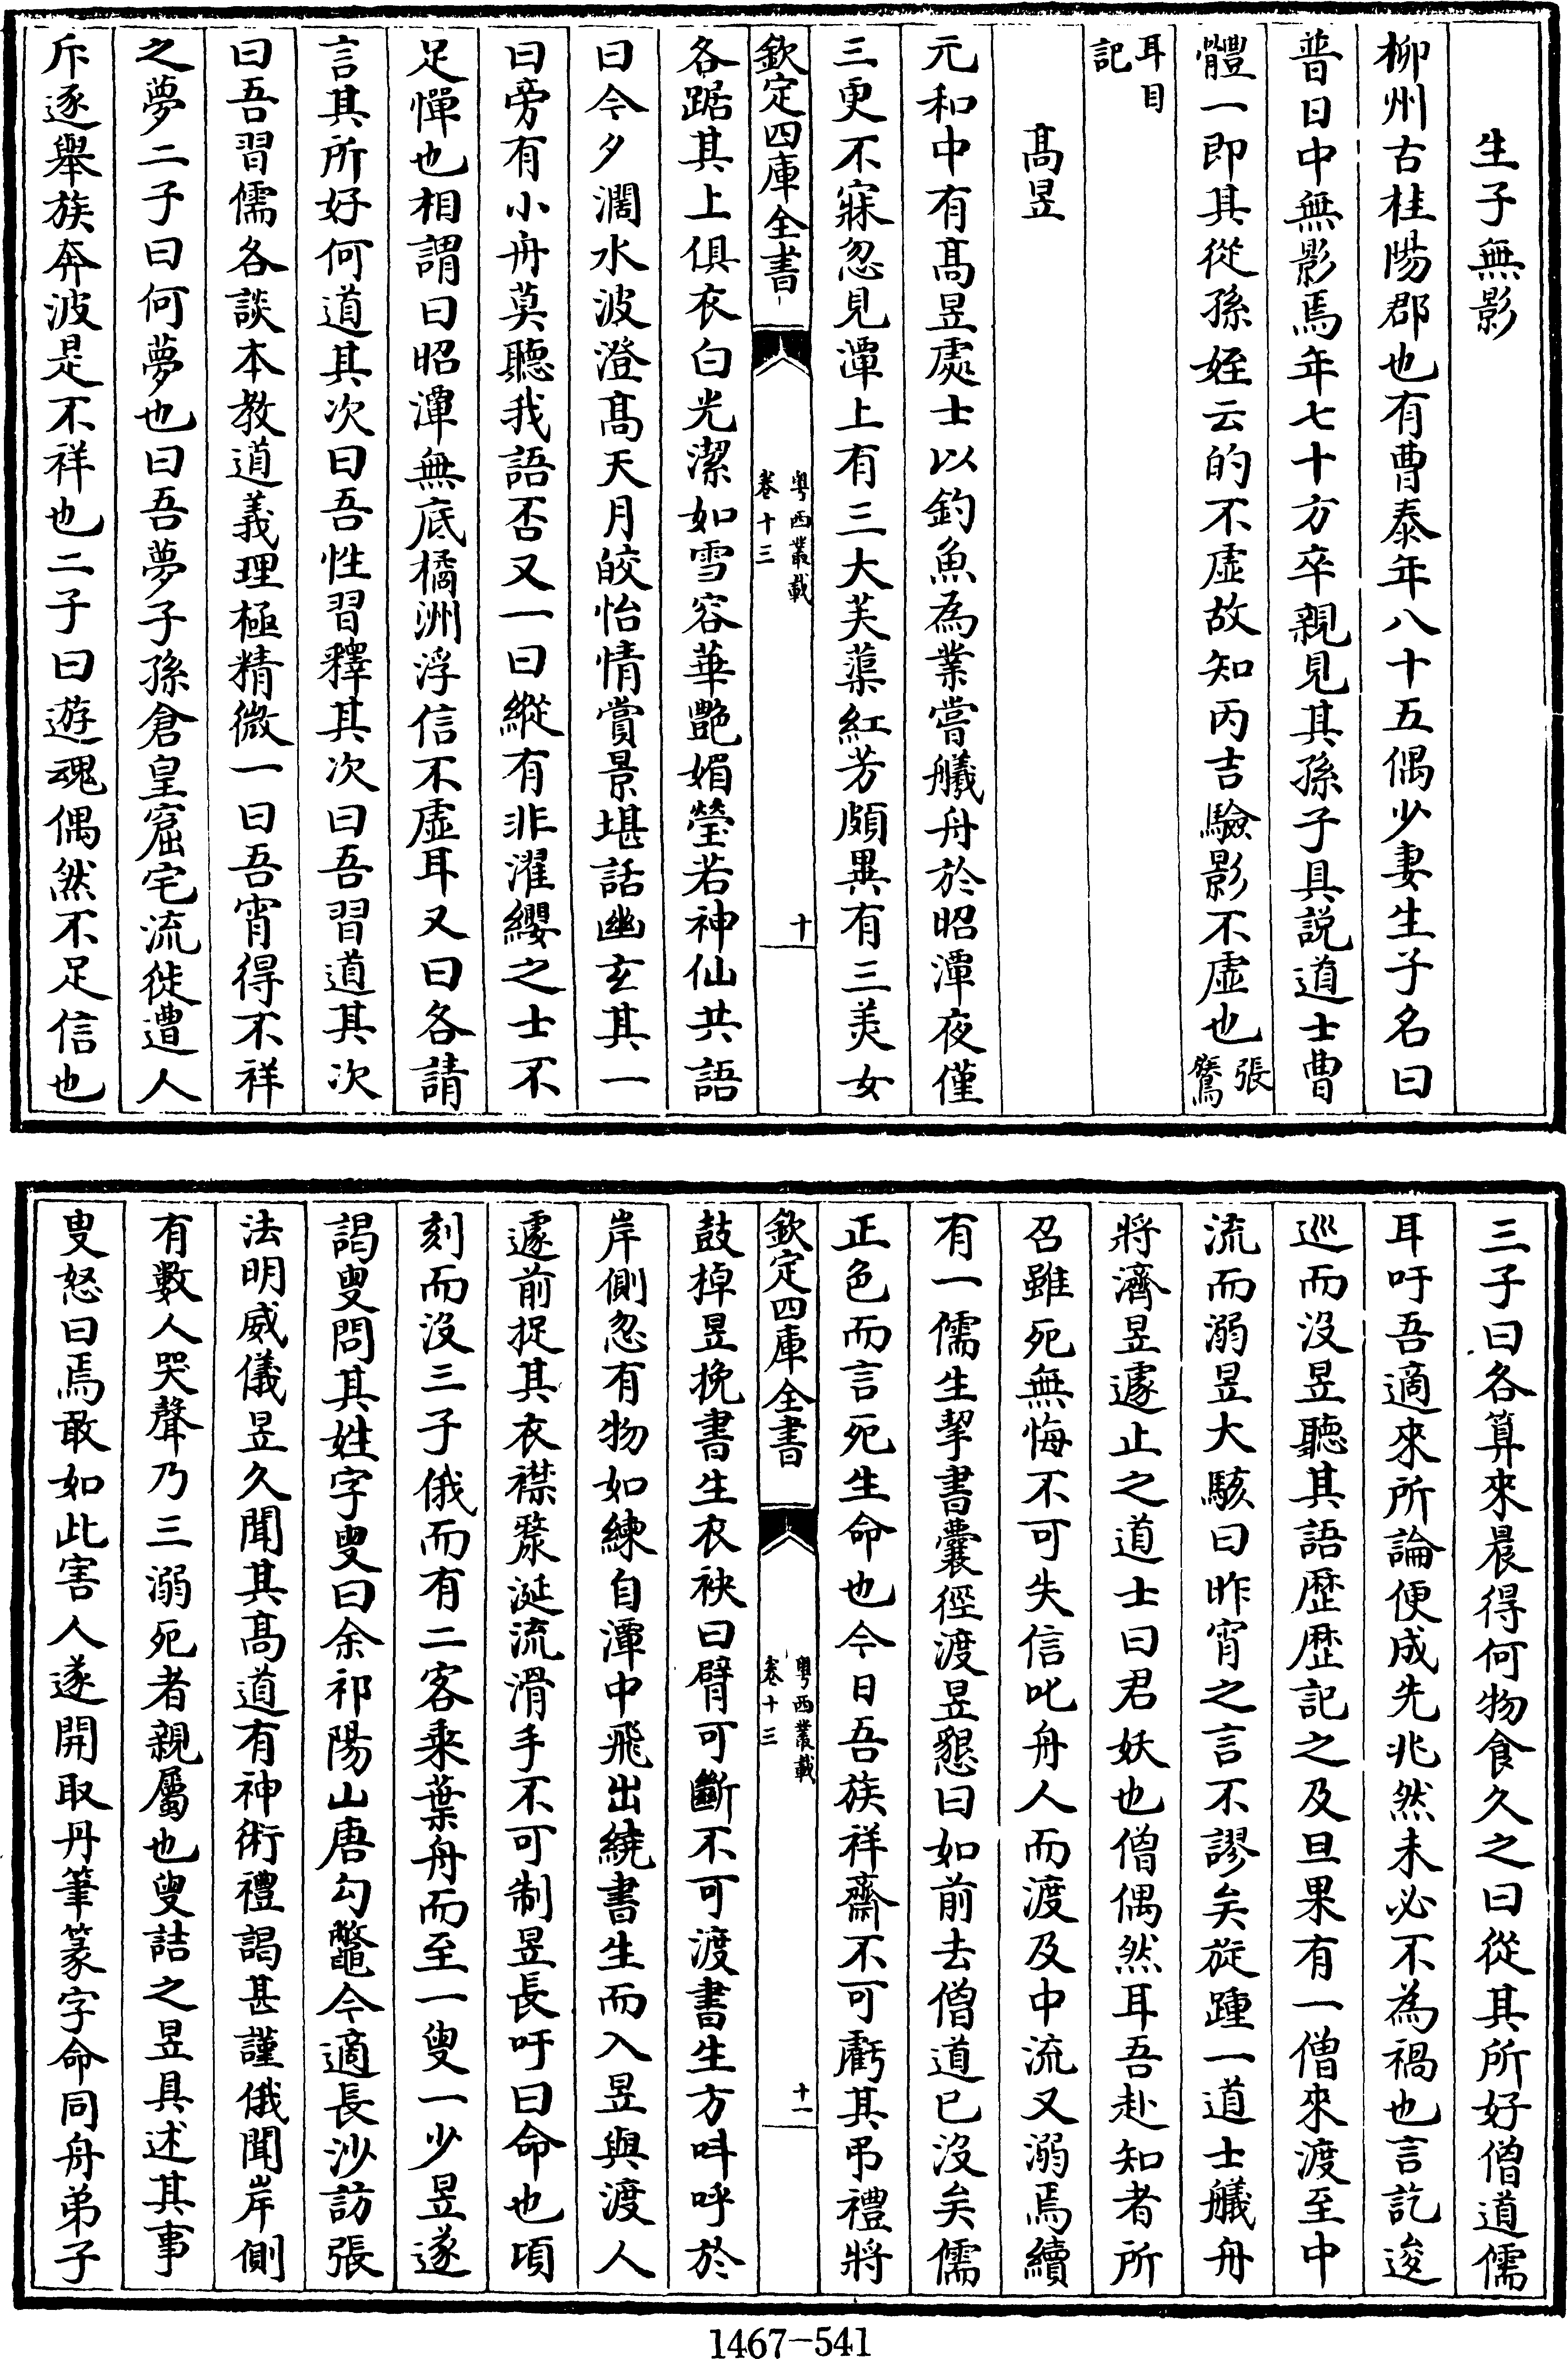 生子無影
柳州古桂陽郡也有曹泰年八十五偶少妻生子名曰
普日中無影焉年七十方卒親見其孫子具説道士曹
體一即其從孫姪云的不虛故知丙吉驗影不虛也張鷟
耳目記
髙昱
元和中有髙昱處士以釣魚為業嘗艤舟於昭潭夜僅
三更不寐忽見潭上有三大芙蕖紅芳頗異有三美女
欽定四庫全書
粤西叢載
卷十三
十
各踞其上俱衣白光潔如雪容華艶媚瑩若神仙共語
曰今夕濶水波澄髙天月皎怡情賞景堪話幽玄其一
曰旁有小舟莫聽我語否又一曰縱有非濯纓之士不
足憚也相謂曰昭潭無底橘洲浮信不虛耳又曰各請
言其所好何道其次曰吾性習釋其次曰吾習道其次
曰吾習儒各談本教道義理極精微一曰吾宵得不祥
之夢二子曰何夢也曰吾夢子孫倉皇窟宅流徙遭人
斥逐舉族奔波是不祥也二子曰遊魂偶然不足信也
三子曰各算來晨得何物食久之曰從其所好僧道儒
耳吁吾適來所論便成先兆然未必不為禍也言訖逡
巡而沒昱聽其語歴歴記之及旦果有一僧來渡至中
流而溺昱大駭曰昨宵之言不謬矣旋踵一道士艤舟
將濟昱遽止之道士曰君妖也僧偶然耳吾赴知者所
召雖死無悔不可失信叱舟人而渡及中流又溺焉續
有一儒生挈書囊徑渡昱懇曰如前去僧道已沒矣儒
正色而言死生命也今日吾族祥齋不可虧其弔禮將
欽定四庫全書
粤西叢載
卷十三
十一
鼓棹昱挽書生衣袂曰臂可斷不可渡書生方呌呼於
岸側忽有物如練自潭中飛出繞書生而入昱與渡人
遽前捉其衣襟漦涎流滑手不可制昱長吁曰命也頃
刻而沒三子俄而有二客乘葉舟而至一叟一少昱遂
謁叟問其姓字叟曰余祁陽山唐勾鼈今適長沙訪張
法明威儀昱久聞其髙道有神術禮謁甚謹俄聞岸側
有數人哭聲乃三溺死者親屬也叟詰之昱具述其事
叟怒曰焉敢如此害人遂開取丹筆篆字命同舟弟子
1467-541